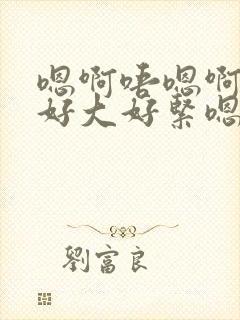 嗯啊唔嗯啊
好大好紧嗯
劉富良